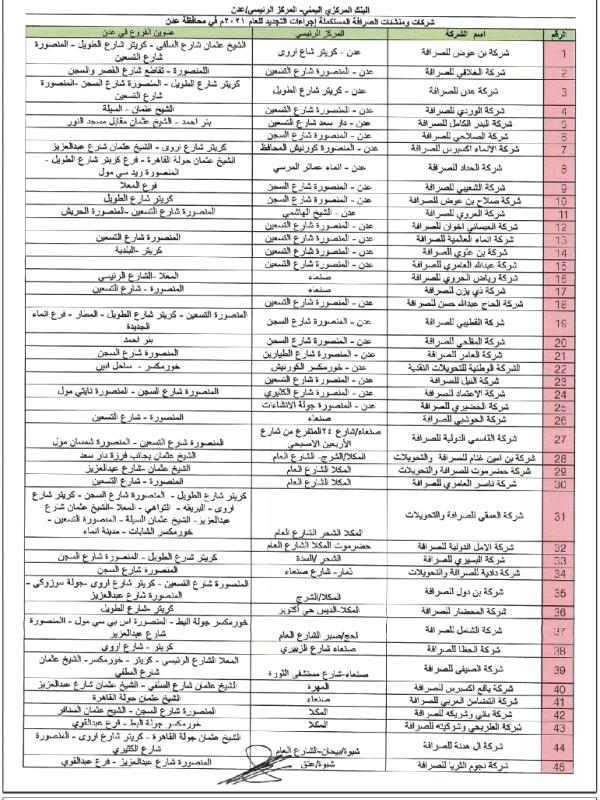 البنك المركزي اليمني- المركز الرئيسي/عدن
شركات ومنشئات الصرافة المستكملة إجراءات التجديد للعام ٢٠٢١م في محافظة عدن
الرقم اسم الشركة المركز الرئيسي عناوين الفروع في عدن
1 شركة بن عوض للصرافة عدن - كريتر شاع اروى الشيخ عثمان شارع السلفي - كريتر شارع الطويل - المنصورة شارع التسعين
2 شركة الخلاقي للصرافة عدن - المنصورة شارع التسعين المنصورة - تقاطع شارع القصر والسجن
3 شركة عدن للصرافة عدن - كريتر شارع الطويل كريتر شارع الطويل - المنصورة شارع السجن -المنصورة شارع التسعين
4 شركة الوردي للصرافة عدن - المنصورة شارع التسعين الشيخ عثمان - السيلة
5 شركة البدر الكامل للصرافة عدن - دار سعد شارع التسعين بئر احمد - الشيخ عثمان مقابل مسجد النور
6 شركة الصلاحي للصرافة عدن - المنصورة شارع السجن
7 شركة الانماء اكسبرس للصرافة عدن - المنصورة كورنيش المحافظ كريتر شارع اروى - الشيخ عثمان شارع عبدالعزيز
8 شركة الحداد للصرافة عدن - انماء عمائر المرسي الشيخ عثمان جولة القاهرة - فرع كريتر شارع الطويل - المنصورة ريد سي مول
9 شركة الشعيبي للصرافة عدن - المنصورة شارع السجن فرع المعلا
10 شركة صلاح بن عوض للصرافة عدن - المنصورة شارع السجن كريتر شارع الطويل
11 شركة العروي للصرافة عدن - الشيخ الهاشمي المنصورة شارع التسعين -المنصورة الحريش
12 شركة العيسائي اخوان للصرافة عدن - المنصورة شارع التسعين
13 شركة انماء العالمية للصرافة عدن - المنصورة شارع التسعين المنصورة شارع التسعين
14 شركة بن علوي للصرافة عدن - المنصورة شارع التسعين كريتر -البلدية
15 شركة عبدالله العامري للصرافة عدن - المنصورة شارع التسعين
16 شركة رياض الحروي للصرافة صنعاء المعلا -الشارع الرئيسي
17 شركة ذي يزن للصرافة صنعاء المنصورة - شارع التسعين
18 شركة الحاج عبدالله حسن للصرافة عدن - المنصورة شارع التسعين
19 شركة القطيبي للصرافة عدن - المنصورة شارع السجن المنصورة التسعين - كريتر شارع الطويل - المطار - فرع انماء الجديدة
20 شركة المفلحي للصرافة عدن - المنصورة شارع السجن بئر احمد
21 شركة العامر للصرافة عدن - المنصورة شارع الطيارين المنصورة شارع السجن
22 الشركة الوطنية للتحويلات النقدية عدن - خورمكسر الكورنيش خورمكسر - ساحل ابين
23 شركة النيل للصرافة عدن - المنصورة شارع التسعين
24 شركة الاعتماد للصرافة عدن - المنصورة شارع الكثيري المنصورة شارع السجن - المنصورة نايتي مول
25 شركة الخضيري للصرافة عدن - المنصورة جولة الانشاءات
26 شركة الحوشبي للصرافة صنعاء المنصورة - شارع التسعين
27 شركة القاسمي الدولية للصرافة صنعاء/شارع ٢٤المتفرع من شارع الأربعين الاصبحي المنصورة شارع التسعين - المنصورة شمسان مول
28 شركة بن امين غنام للصرافة والتحويلات المكلا/الشرج- الشارع العام الشيخ عثمان بجانب فرزة دار سعد
29 شركة حضرموت للصرافة والتحويلات المكلا الشارع العام الشيخ عثمان -شارع عبدالعزيز
30 شركة ناصر العامري للصرافة المكلا الشارع العام المنصورة - شارع التسعين
31 شركة العمقي للصرافة والتحويلات المكلا الشحر الشارع العام كريتر شارع الطويل - المنصورة شارع السجن - كريتر شارع اروى - البريقه - التواهي - المعلا -الشيخ عثمان شارع عبدالعزيز- الشيخ عثمان السيلة - المنصورة التسعين - خورمكسر الشابات - مدينة انماء
32 شركة الامل الدولية للصرافة حضرموت المكلا الشارع العام
33 شركة البسيري للصرافة الشحر /السدة كريتر شارع الطويل - المنصورة شارع السجن
34 شركة دادية للصرافة والتحويلات ذمار- شارع صنعاء المنصورة شارع السجن
35 شركة بن دول للصرافة المكلا/الشرج المنصورة شارع التسعين - كريتر شارع اروى -جولة سوزوكي - المنصورة شارع عبدالعزيز
36 شركة المحضار للصرافة المكلا-الديس حي أكتوبر كريتر -شارع الطويل
37 شركة الشامل للصرافة لحج/صبر الشارع العام خورمكسر جولة البط - المنصورة اس بي سي مول - المنصورة شارع عبدالعزيز
38 شركة الحظا للصرافة صنعاء شارع الزبيري كريتر - شارع اروى
39 شركة الصيفي للصرافة صنعاء-شارع مستشفى الثورة المعلا الشارع الرئيسي - كريتر - خورمكسر- الشيخ عثمان شارع السلفي
40 شركة يافع اكسبرس للصرافة المهرة الشيخ عثمان شارع السلفي - الشيخ عثمان شارع عبدالعزيز
41 شركة التضامن العربي للصرافة صنعاء الشيخ عثمان جولة القاهرة
42 شركة باني وشريكه للصرافة المكلا المنصورة شارع السجن - الشيخ عثمان المسافر
43 شركة الطريحي وشركيته للصرافة المكلا خورمكسر جولة البط - فرع عبدالقوي
44 شركة ال هدنة للصرافة شبوة/بيحان-الشارع العام الشيخ عثمان جولة القاهرة - كريتر شارع اروى - المنصورة شارع الكثيري
45 شركة نجوم الثريا للصرافة شبوة/عتق المنصورة شارع عبدالعزيز - فرع عبدالقوي